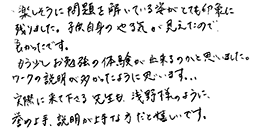 楽しそうに問題を解いている姿がとても印象に
残りました。子供自身のやる気が見えたので
良かったです。
もう少しお勉強の体験が出来るのかと思いました。
ワークの説明が多かったように思います...
実際に来て下さる先生も、浅野様のように、
誉め上手、説明が上手な方だと嬉しいです。